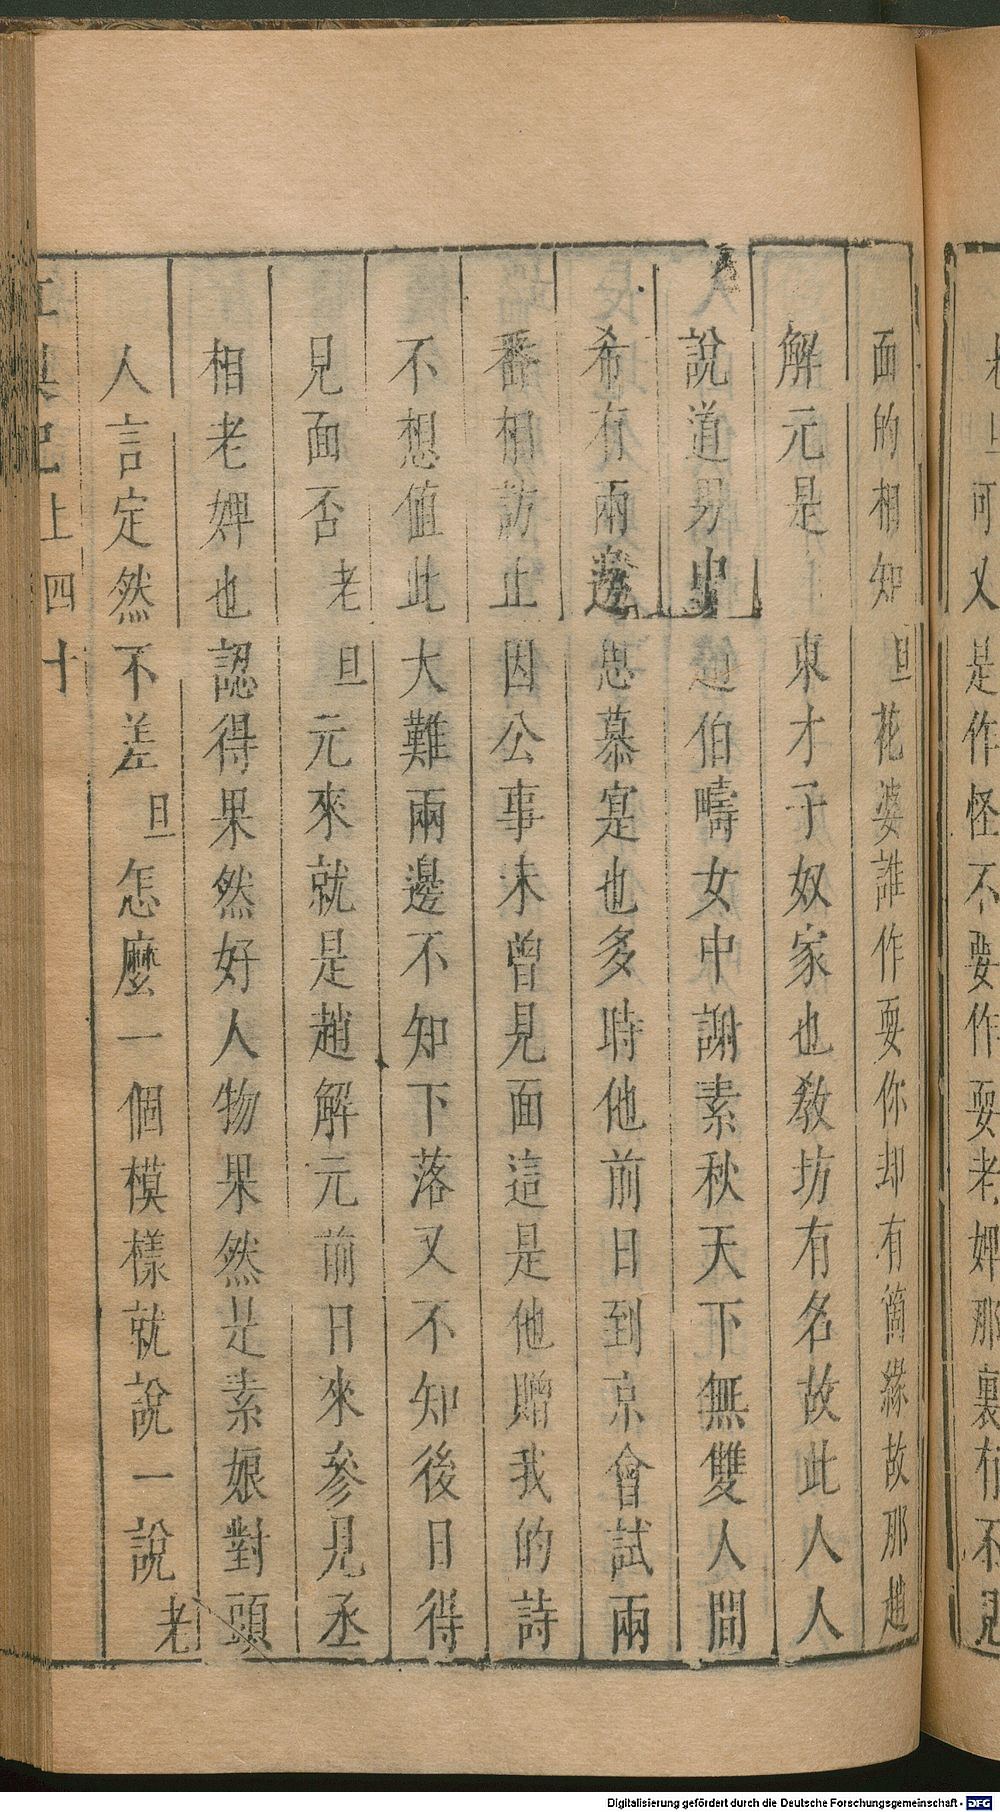 可又是作怪不要作耍老婢那裏有不見
面的相知旦花婆誰作耍你却有箇緣故那趙
解元是東才子奴家也敎坊有名故此人人
說道男中趙伯疇女中謝素秋天下無雙人間
希有兩邊思慕寔也多時他前日到京會試兩
番相訪止因公事未曾見面這是他贈我的詩
不想値此大難兩邊不知下落又不知後日得
見面否老旦元來就是趙解元前日來參見丞
相老婢也認得果然好人物果然是素娘對頭
人言定然不差旦怎麼一個模樣就說一說老
記上四十
Digitalisierung gefördert durch die Deutsche Forschungsgemeinschaft - DFG